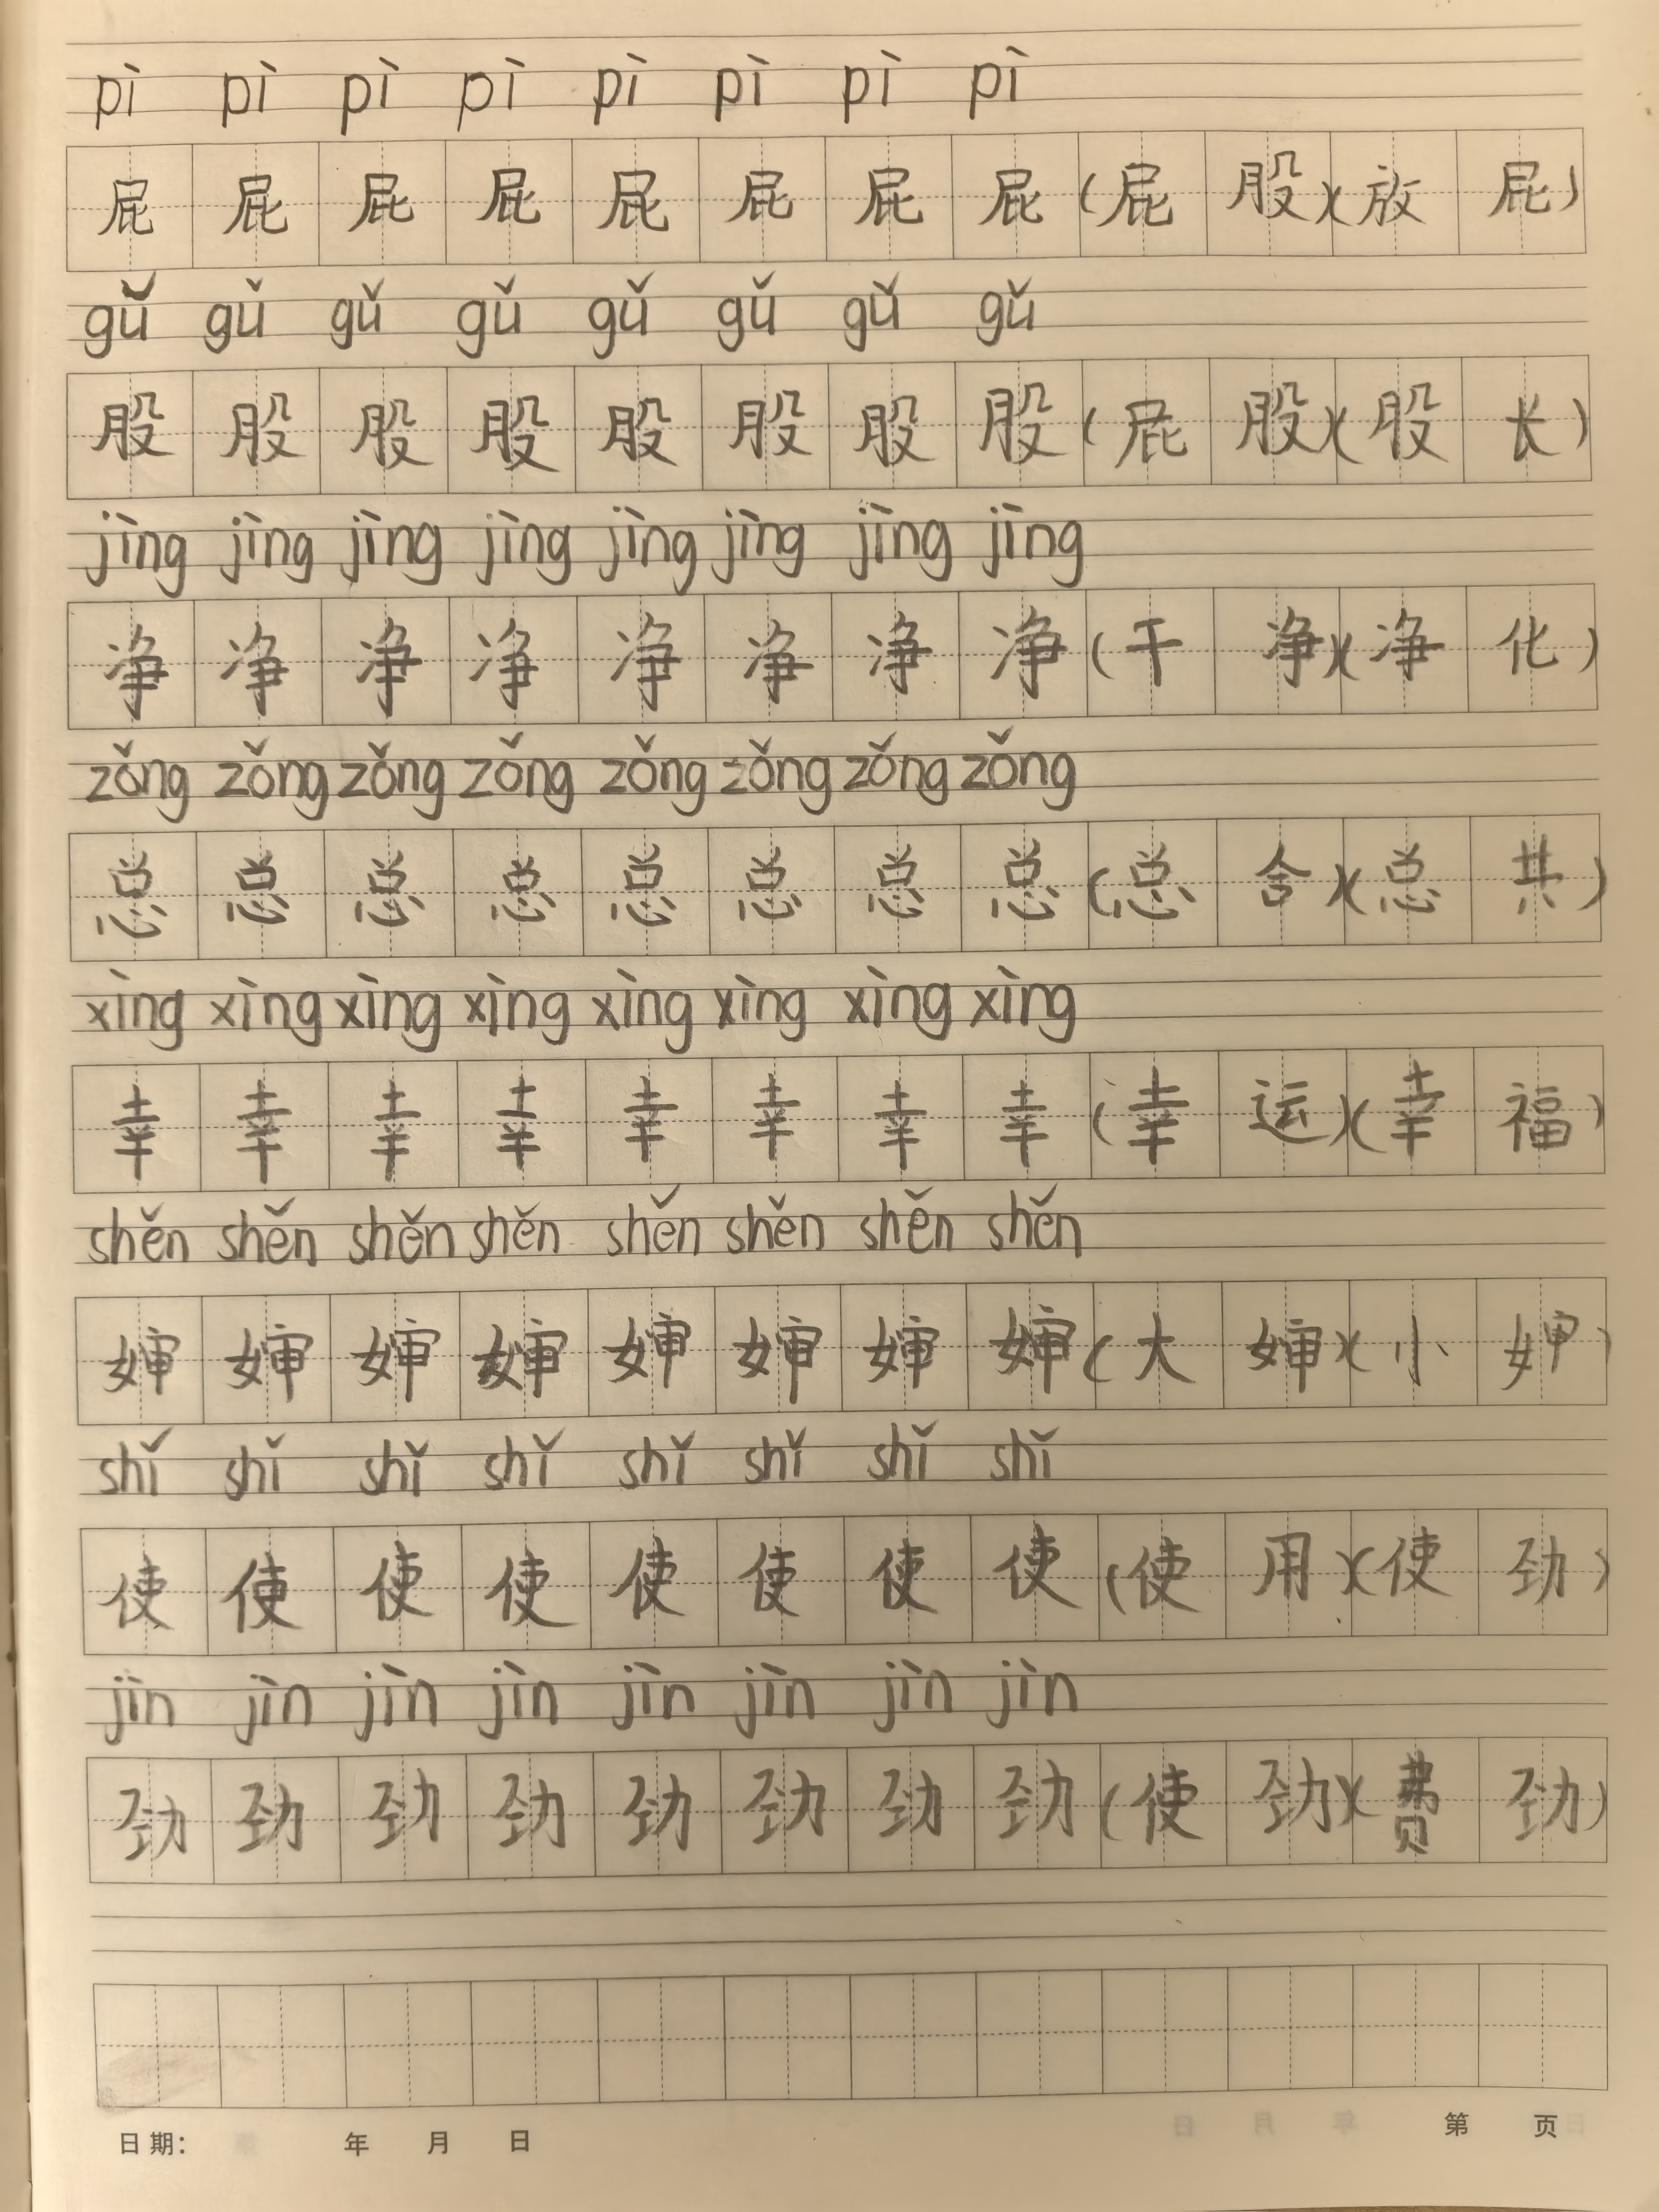 pì pì pì pì pì pì pì pì
屁 屁 屁 屁 屁 屁 屁 屁 (屁 股)(放 屁)
gǔ gǔ gǔ gǔ gǔ gǔ gǔ gǔ
股 股 股 股 股 股 股 股 (屁 股)(股 长)
jìng jìng jìng jìng jìng jìng jìng jìng
净 净 净 净 净 净 净 净 (干 净)(净 化)
zǒng zǒng zǒng zǒng zǒng zǒng zǒng zǒng
总 总 总 总 总 总 总 总 (总 合)(总 共)
xìng xìng xìng xìng xìng xìng xìng xìng
幸 幸 幸 幸 幸 幸 幸 幸 (幸 运)(幸 福)
shěn shěn shěn shěn shěn shěn shěn shěn
婶 婶 婶 婶 婶 婶 婶 婶 (大 婶)(小 婶)
shǐ shǐ shǐ shǐ shǐ shǐ shǐ shǐ
使 使 使 使 使 使 使 使 (使 用)(使 劲)
jìn jìn jìn jìn jìn jìn jìn jìn
劲 劲 劲 劲 劲 劲 劲 劲 (使 劲)(费 劲)
日期： 年 月 日 第 页